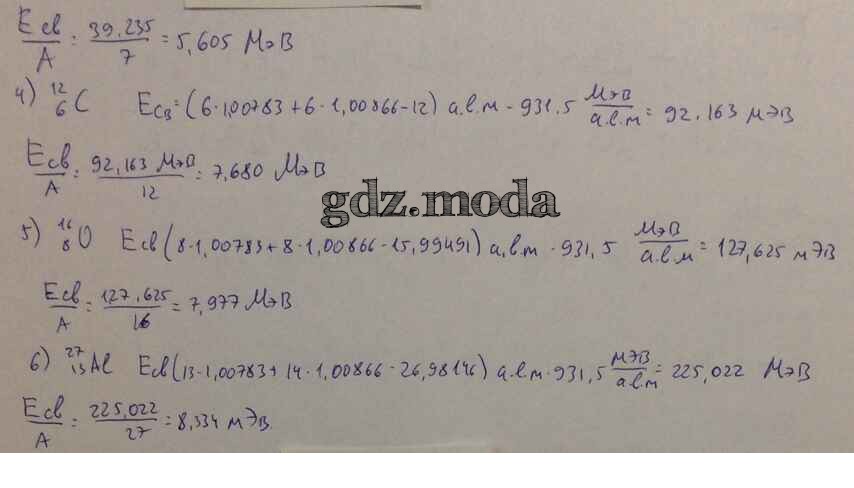 Eсв/A = 39,235/7 = 5,605 МэВ
4) ¹²₆C Eсв=(6·1,00783+6·1,00866-12) а.е.м · 931,5 МэВ/а.е.м = 92,163 МэВ
Eсв/A = 92,163 МэВ/12 = 7,680 МэВ
gdz.moda
5) ¹⁶₈O Eсв(8·1,00783+8·1,00866-15,99491) а.е.м · 931,5 МэВ/а.е.м = 127,625 мЭВ
Eсв/A = 127,625/16 = 7,977 МэВ
6) ²⁷₁₃Al Eсв(13·1,00783+14·1,00866-26,98146) а.е.м·931,5 мэВ/а.е.м = 225,022 МэВ
Eсв/A = 225,022/27 = 8,334 мЭВ